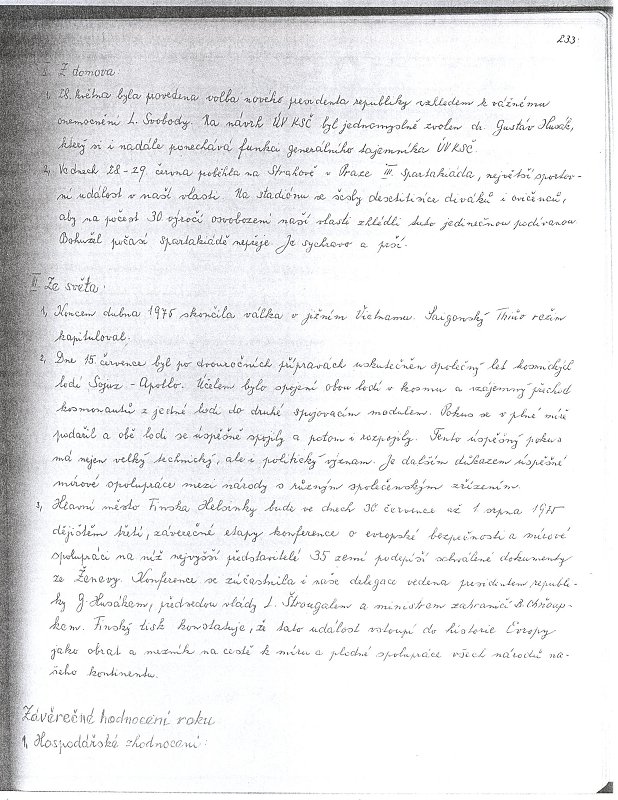 233.
I. Z domova
1, 28. května byla provedena volba nového presidenta republiky vzhledem k vážnému
onemocnění L. Svobody. Na návrh ÚV KSČ byl jednomyslně zvolen dr. Gustáv Husák,
který si i nadále ponechává funkci generálního tajemníka ÚV KSČ.
2, Ve dnech 28-29. června poběhla na Strahově v Praze III. spartakiáda, největší sportov-
ní událost v naší vlasti. Na stadiónu se sešly desetitisíce diváků i cvičenců,
aby na počest 30 výročí osvobození naší vlasti zhlédli tuto jedinečnou podívanou.
Bohužel počasí spartakiádě nepřeje. Je sychravo a prší.
II. Ze světa.
1, Koncem dubna 1975 skončila válka v jižním Vietnamu. Saigonský Thiův režim
kapituloval.
2, Dne 15. července byl po dvouročních přípravách uskutečněn společný let kosmických
lodí Sojuz - Apollo. Účelem bylo spojení obou lodí v kosmu a vzájemný přechod
kosmonautů z jedné lodi do druhé spojovacím modulem. Pokus se v plné míře
podařil a obě lodi se úspěšně spojily a potom i rozpojily. Tento úspěšný pokus
má nejen velký technický, ale i politický význam. Je dalším důkazem úspěšné
mírové spolupráce mezi národy s různým společenským zřízením.
3, Hlavní město Finska Helsinky bude ve dnech 30 července až 1 srpna 1975
dějištěm třetí, závěrečné etapy konference o evropské bezpečnosti a mírové
spolupráci na níž nejvyšší představitelé 35 zemí podepíší schválené dokumenty
ze Ženevy. Konference se zúčastnila i naše delegace vedena presidentem republi-
ky G. Husákem, předsedou vlády L. Štrougalem a ministrem zahraničí B. Chňoup-
kem. Finský tisk konstatuje, že tato událost vstoupí do historie Evropy
jako obrat a mezník na cestě k míru a plodné spolupráce všech národů na-
šeho kontinentu.
Závěrečné hodnocení roku
1, Hospodářské zhodnocení: